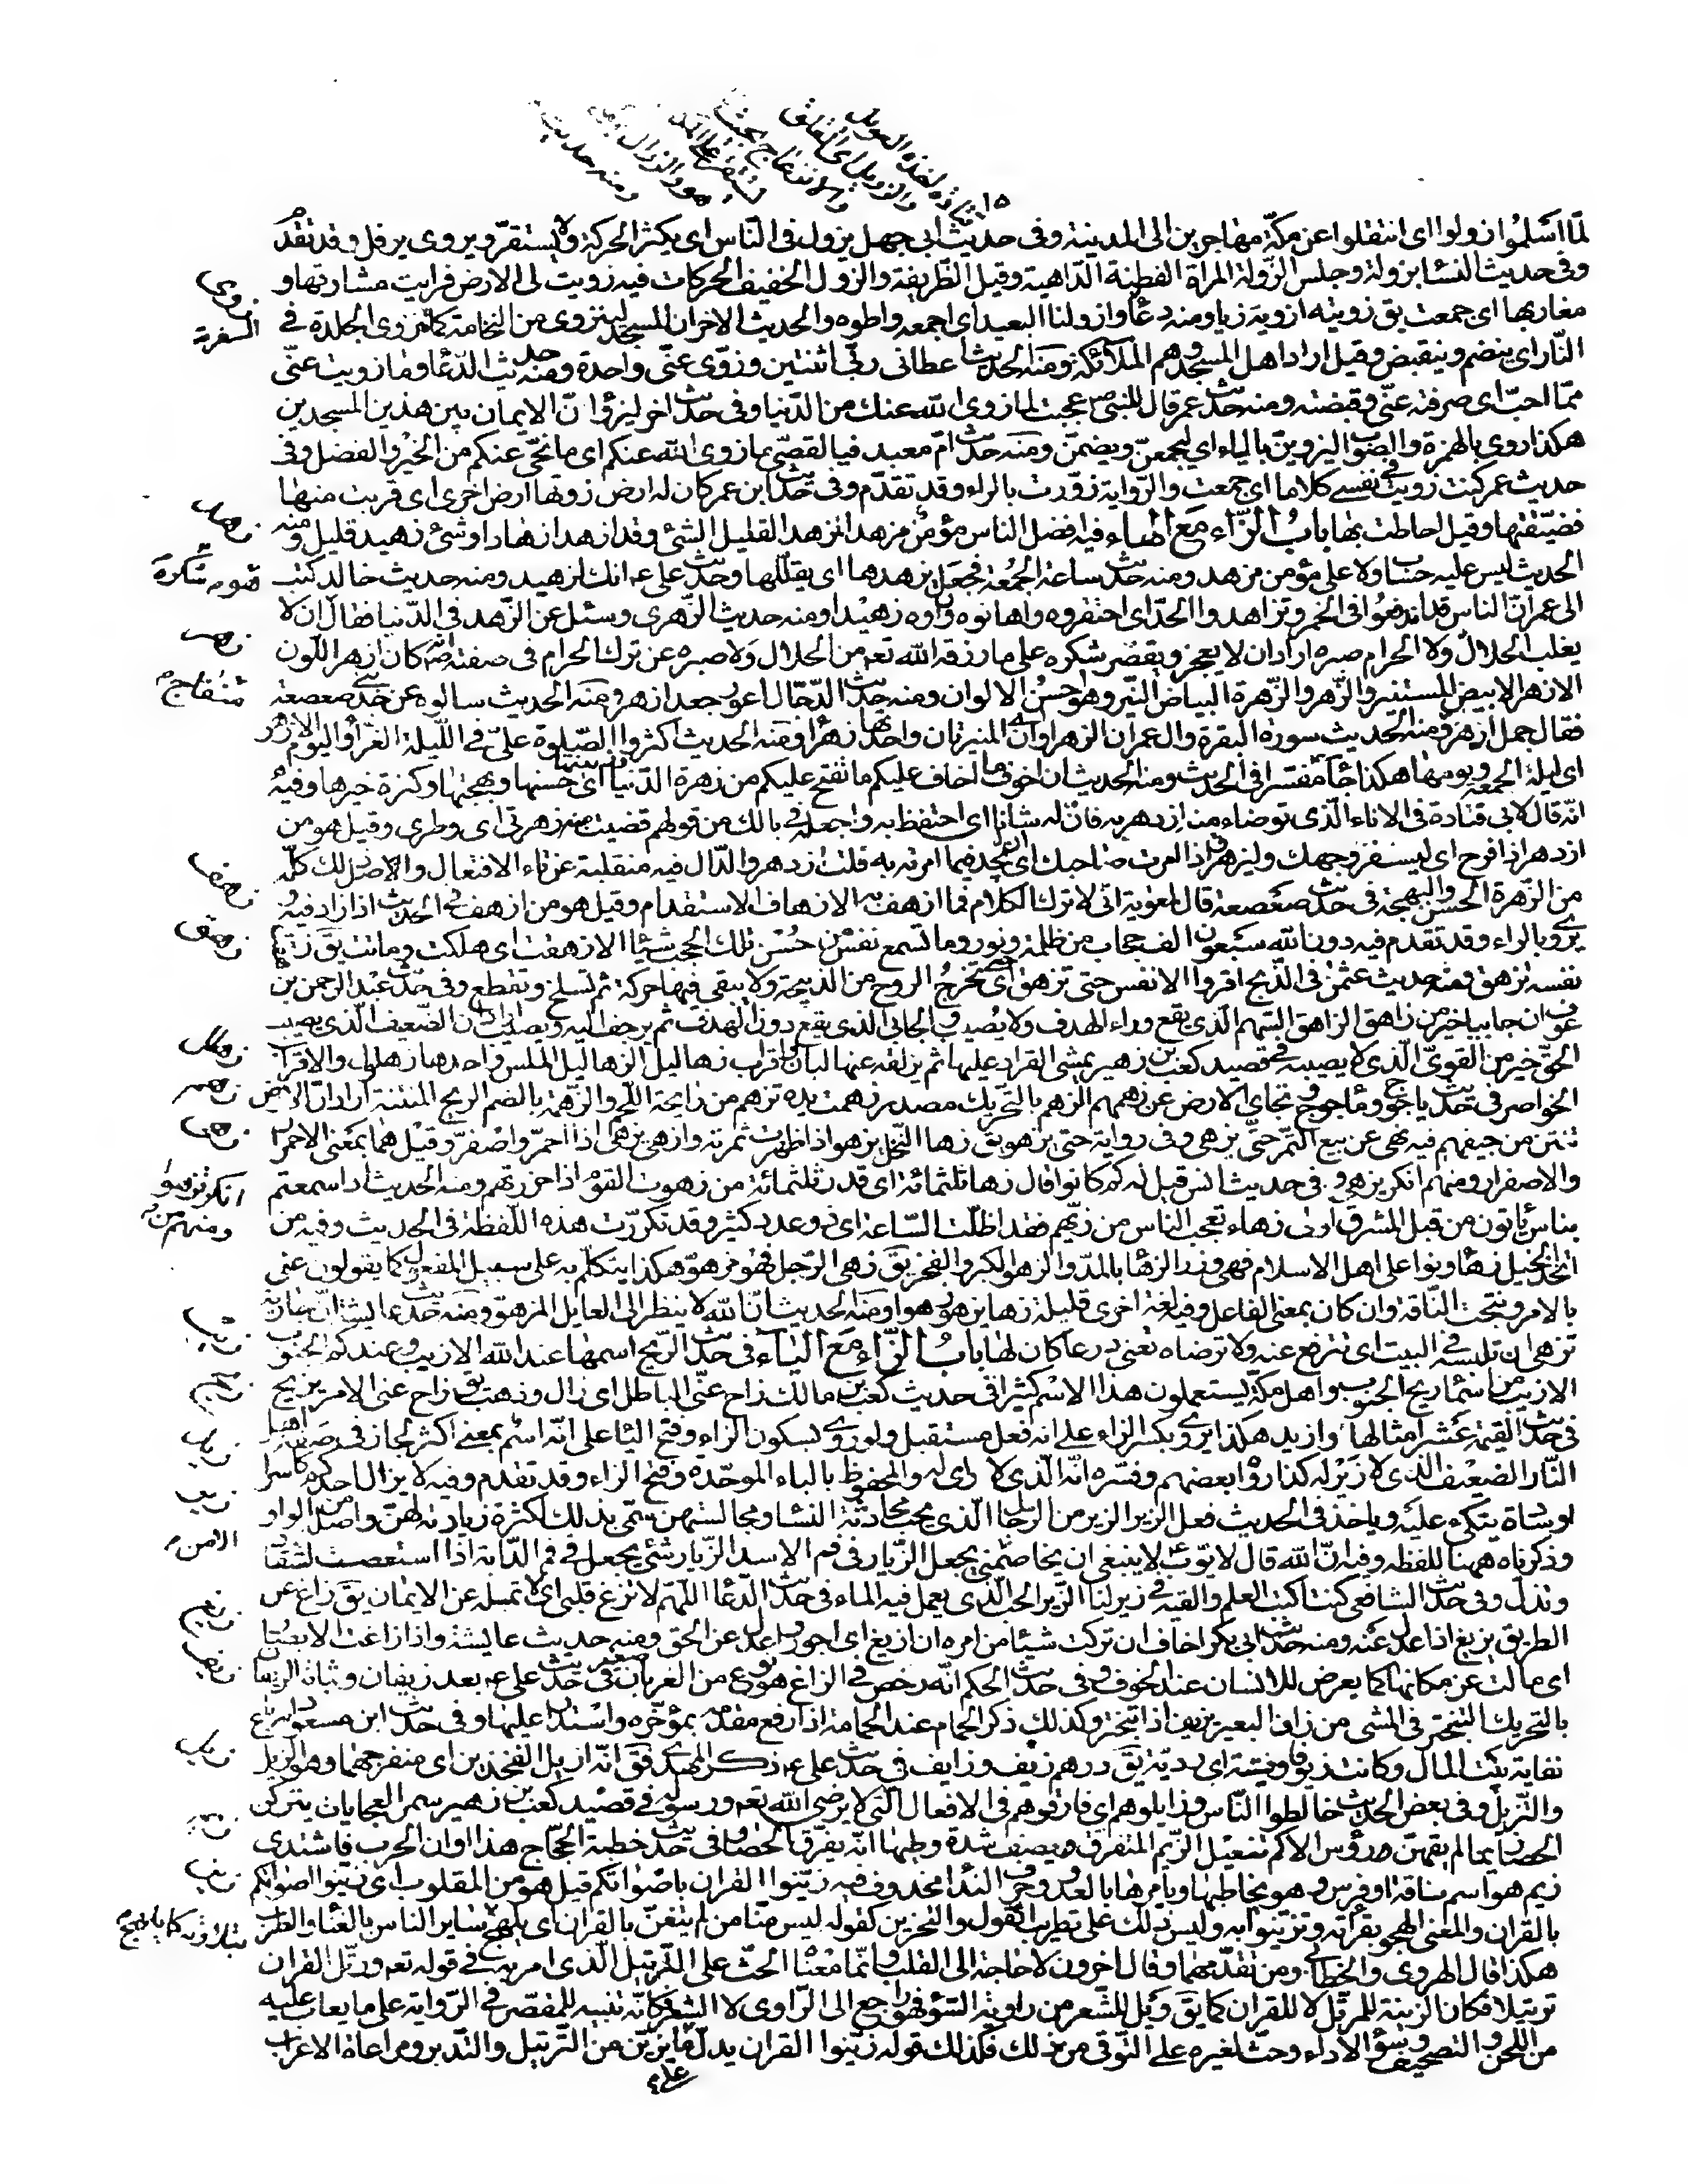 لما اسلموا زولوا اى انتقلوا عن مكة مهاجرين الى المدينة وفى حديث ابى جهل يزول فى الناس اى يكثر الحركة ولا يستقر ويروى يرفل وقد تقدم
وفى حديث النسا بزولة وجلس الزولة المراة الفطنة الداهية وقيل الظريفة والزول الخفيف الحركات فيه زويت لى الارض فرايت مشارقها و
مغاربها اى جمعت يق زويته ازويه زيا ومنه دعا وازو لنا البعيد اى اجمعه واطوه والحديث الاخر ان المسجد لينزوى من النخامة كما تنزوى الجلدة فى
النار اى ينضم وينقبض وقيل اراد اهل المسجد وهم الملائكة ومنه الحديث اعطانى ربى اثنتين وزوى عنى واحدة ومنه حديث الدعا وما زويت عنى
مما احب اى صرفته عنى وقبضته ومنه حديث عمر قال للنبى ص عجبت لما زوى الله عنك من الدنيا وفى حديث اخر ليزوأن الايمان بين هذين المسجدين
هكذا روى بالهمزة والصواب ليزوين بالياء اى ليجمعن ويضمن ومنه حديث ام معبد فيا لقصى ما زوى الله عنكم اى ما نحى عنكم من الخير والفضل وفى
حديث عمر كنت زويت فى نفسى كلاما اى جمعت والرواية زورت بالراء وقد تقدم وفى حديث ابن عمر كان له ارض زوتها ارض اخرى اى قربت منها
فضيقتها وقيل احاطت بها باب الزاء مع الهاء فيه افضل الناس مؤمن مزهد المزهد القليل الشئ وقد ازهد ازهادا وشئ زهيد قليل ومنه
الحديث ليس عليه حساب ولا على مؤمن مزهد ومنه حديث ساعة الجمعة فجعل يزهدها اى يقللها وحديث على ع انك لزهيد ومنه حديث خالد كتب
الى عمر ان الناس قد اندفعوا فى الخمر وتزاهدوا الحد اى احتقروه واهانوه وراوه زهيدا ومنه حديث الزهرى وسئل عن الزهد فى الدنيا فقال ان لا
يغلب الحلال ولا الحرام صبره اراد ان لا يعجز ويقصر شكره على ما رزقه الله تع من الحلال ولا صبره عن ترك الحرام فى صفته انه كان ازهر اللون
الازهر الابيض المستنير والزهر والزهرة البياض النير وهو احسن الالوان ومنه حديث الدجال اعور جعد ازهر ومنه الحديث سالوه عن جد بنى عامر بن صعصعة
فقال جمل ازهر ومنه الحديث سورة البقرة وال عمران الزهراوان اى المنيرتان واحدتها زهراء ومنه الحديث اكثروا الصلوة على فى الليلة الغراء واليوم الازهر
اى ليلة الجمعة ويومها هكذا جاء مفسرا فى الحديث ومنه الحديث ان اخوف ما اخاف عليكم ما تفتح عليكم من زهرة الدنيا اى حسنها وبهجتها وكثرة خيرها وفيه
انه قال لابى قتادة فى الاناء الذى توضاء منه ازدهر به فان له شانا اى احتفظ به واجعله فى بالك من قولهم قضيت منه زهرتى اى وطرى وقيل هو من
ازدهر اذا فرح اى ليسفر وجهك وليزهر واذا امرت صاحبك ان يجد فيما امرته به قلت ازدهر والدال فيه منقلبة عن تاء الافتعال والاصل ذلك كله
من الزهرة الحسن والبهجة فى حديث صعصعة قال لمعوية انى لا ترك الكلام فما ازهف به الازهاف الاستقدام وقيل هو من ازهف فى الحديث اذا زاد فيه و
يروى بالراء وقد تقدم فيه دون الله سبعون الف حجاب من ظلمة ونور وما تسمع نفس من حسن تلك الحجب شيئا الا زهقت اى هلكت وماتت يق زهقت
نفسه تزهق ومنه حديث عثمن فى الذبح اقروا الانفس حتى تزهق اى حتى تخرج الروح من الذبيحة ولا يبقى فيها حركة ثم تسلخ وتقطع وفى حديث عبد الرحمن بن
عوف ان جابيا خير من زاهق الزاهق السهم الذى يقع وراء الهدف ولا يصيب والجابى الذى يقع دون الهدف ثم يزحف اليه ويصيب اراد ان الضعيف الذى يصيب
الحق خير من القوى الذى لا يصيبه فى قصيد كعب بن زهير يمشى القراد عليها ثم يزلقه عنها لبان واقراب زهاليل الزهاليل الملس واحدها زهلول والاقراب
الخواصر فى حديث ياجوج وماجوج وتجاى الارض عن زهمهم الزهم بالتحريك مصدر زهمت يده تزهم من رايحة اللحم والزهمة بالضم الريح المنتنة اراد ان الارض
تنتن من جيفهم فيه نهى عن بيع الثمر حتى يزهى وفى رواية حتى يزهو يق زها النخل يزهو اذا ظهرت ثمرته وازهى يزهى اذا احمر واصفر وقيل هما بمعنى الاحمرار
والاصفرار ومنهم انكر يزهى فى حديث انس قيل له كم كانوا قال زها ثلثمائة اى قدر ثلثمائة من زهوت القوم اذا حزرتهم ومنه الحديث اذا سمعتم
بناس ياتون من قبل المشرق اولى زهاء تعجب الناس من زيهم فقد اظلت الساعة اى ذو عدد كثير وقد تكررت هذه اللفظة فى الحديث وفيه من
اتخذ الخيل زهاء ونواء على اهل الاسلام فهى وزر الزهاء بالمد والزهو الكبر والفخر يق زهى الرجل فهو مزهو هكذا يتكلم به على سبيل المفعول كما يقولون عنى
بالامر ونتجت الناقة وان كان بمعنى الفاعل وفيه لغة اخرى قليلة زها يزهو زهوا ومنه الحديث ان الله لا ينظر الى العايل المزهو ومنه حديث عايشة ان جاريتى
تزهى ان تلبسه فى البيت اى تترفع عنه ولا ترضاه تعنى درعا كان لها باب الزاء مع الياء فى حديث الريح اسمها عند الله الازيب وعندكم الجنوب
الازيب من اسماء ريح الجنوب واهل مكة يستعملون هذا الاسم كثيرا فى حديث كعب بن مالك زاح عنى الباطل اى زال وذهب يق زاح عنى الامر يزيح
فى حديث القيمة عشر امثالها وازيد هكذا يروى بكسر الزاء على انه فعل مستقبل ولو روى بسكون الزاء وفتح اليا على انه اسم بمعنى اكثر لجاز فى صفة اهل
النار الضعيف الذى لا زير له كذا رواه بعضهم وفسره انه الذى لا راى له والمحفوظ بالباء الموحدة وفتح الزاء وقد تقدم وفيه لا يزال احدكم كاسرا
وسادة يتكى عليه وياخذ فى الحديث فعل الزير الزير من الرجال الذى يحب محادثة النسا ومجالستهن سمى بذلك لكثرة زيارته لهن واصله من الواو
وذكرناه ههنا للفظه وفيه ان الله قال لايوب ع لا ينبغى ان يخاصمنى الا من يجعل الزيار فى فم الاسد الزيار شئ يجعل فى فم الدابة اذا استعصت لتنقاد
وتذل وفى حديث الشافعى كنت اكتب العلم والقيه فى زير لنا الزير الحب الذى يعمل فيه الماء فى حديث الدعا اللهم لا تزغ قلبى اى لا تمله عن الايمان يق زاغ عن
الطريق يزيغ اذا عدل عنه ومنه حديث ابى بكر اخاف ان تركت شيئا من امره ان ازيغ اى اجور واعدل عن الحق ومنه حديث عايشة واذا زاغت الابصار
اى مالت عن مكانها كما يعرض للانسان عند الخوف وفى حديث الحكم انه رخص فى الزاغ هو نوع من الغربان صغير فى حديث على ع بعد زيفان وثباته الزيفان
بالتحريك التبختر فى المشى من زاف البعير يزيف اذا تبختر وكذلك ذكر الحمام عند الحمامة اذا رفع مقدمه بمؤخره واستدار عليها وفى حديث ابن مسعود انه باع
نفاية بيت المال وكانت زيوفا وقسية اى ردية يق درهم زيف وزايف فى حديث على ع ذكر المهدى فق انه ازيل الفخذين اى منفرجهما وهو الزيل
والتزيل وفى بعض الحديث خالطوا الناس وزايلوهم اى فارقوهم فى الافعال التى لا يرضى الله تع ورسوله فى قصيد كعب بن زهير سمر العجايات يتركن
الحصا زيما لم يقهن رؤس الاكم تنعيل الزيم المتفرق يصف شدة وطيها انه يفرق الحصا وفى حديث خطبة الحجاج هذا اوان الحرب فاشتدى
زيم هو اسم ناقة او فرس وهو يخاطبها ويامرها بالعدو وحرف الندا محذوف فيه زينوا القران باصواتكم قيل هو من المقلوب اى زينوا اصواتكم
بالقران والمعنى الهجوا بقرأته وتزينوا به وليس ذلك على تطريب القول والتحزين كقوله ليس منا من لم يتغن بالقران اى يلهج بتلاوته كما يلهج ساير الناس بالغناء والطرب
هكذا قال الهروى والخطابى ومن تقدمهما وقال اخرون لا حاجة الى القلب وانما معناه الحث على الترتيل الذى امر به فى قوله تع ورتل القران
ترتيلا فكان الزينة للمرتل لا للقران كما يق ويل للشعر من راوية السؤ فهو راجع الى الراوى لا الشعر فكانه تنبيه للمقصر فى الرواية على ما يعاب عليه
من اللحن والتصحيف وسؤ الاداء وحث لغيره على التوقى من ذلك فكذلك قوله زينوا القران يدل على ما يزين من الترتيل والتدبر ومراعاة الاعراب